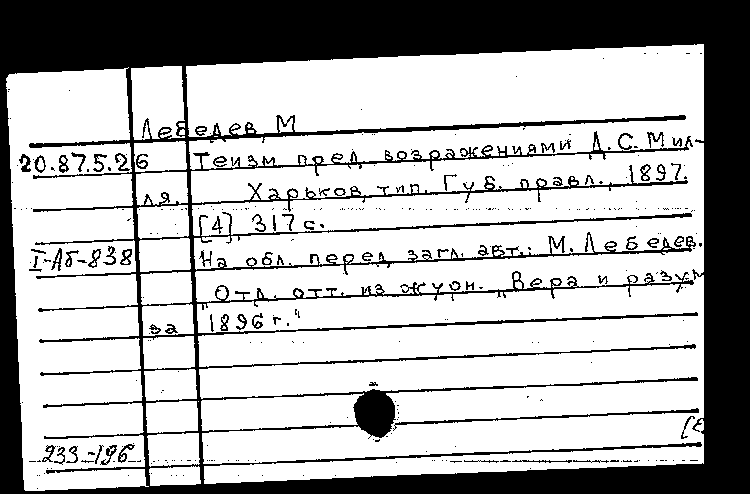 Лебедев, М
20.87.5.26 Теизм пред возражениями Д.С.Мил-
ля. Харьков, тип. Губ. правл., 1897.
[4], 317 с.
I-Аб-838 На обл. перед загл. авт.: М. Лебедев.
"Отд. отт. из журн. „Вера и разум
за 1896 г."
233-196